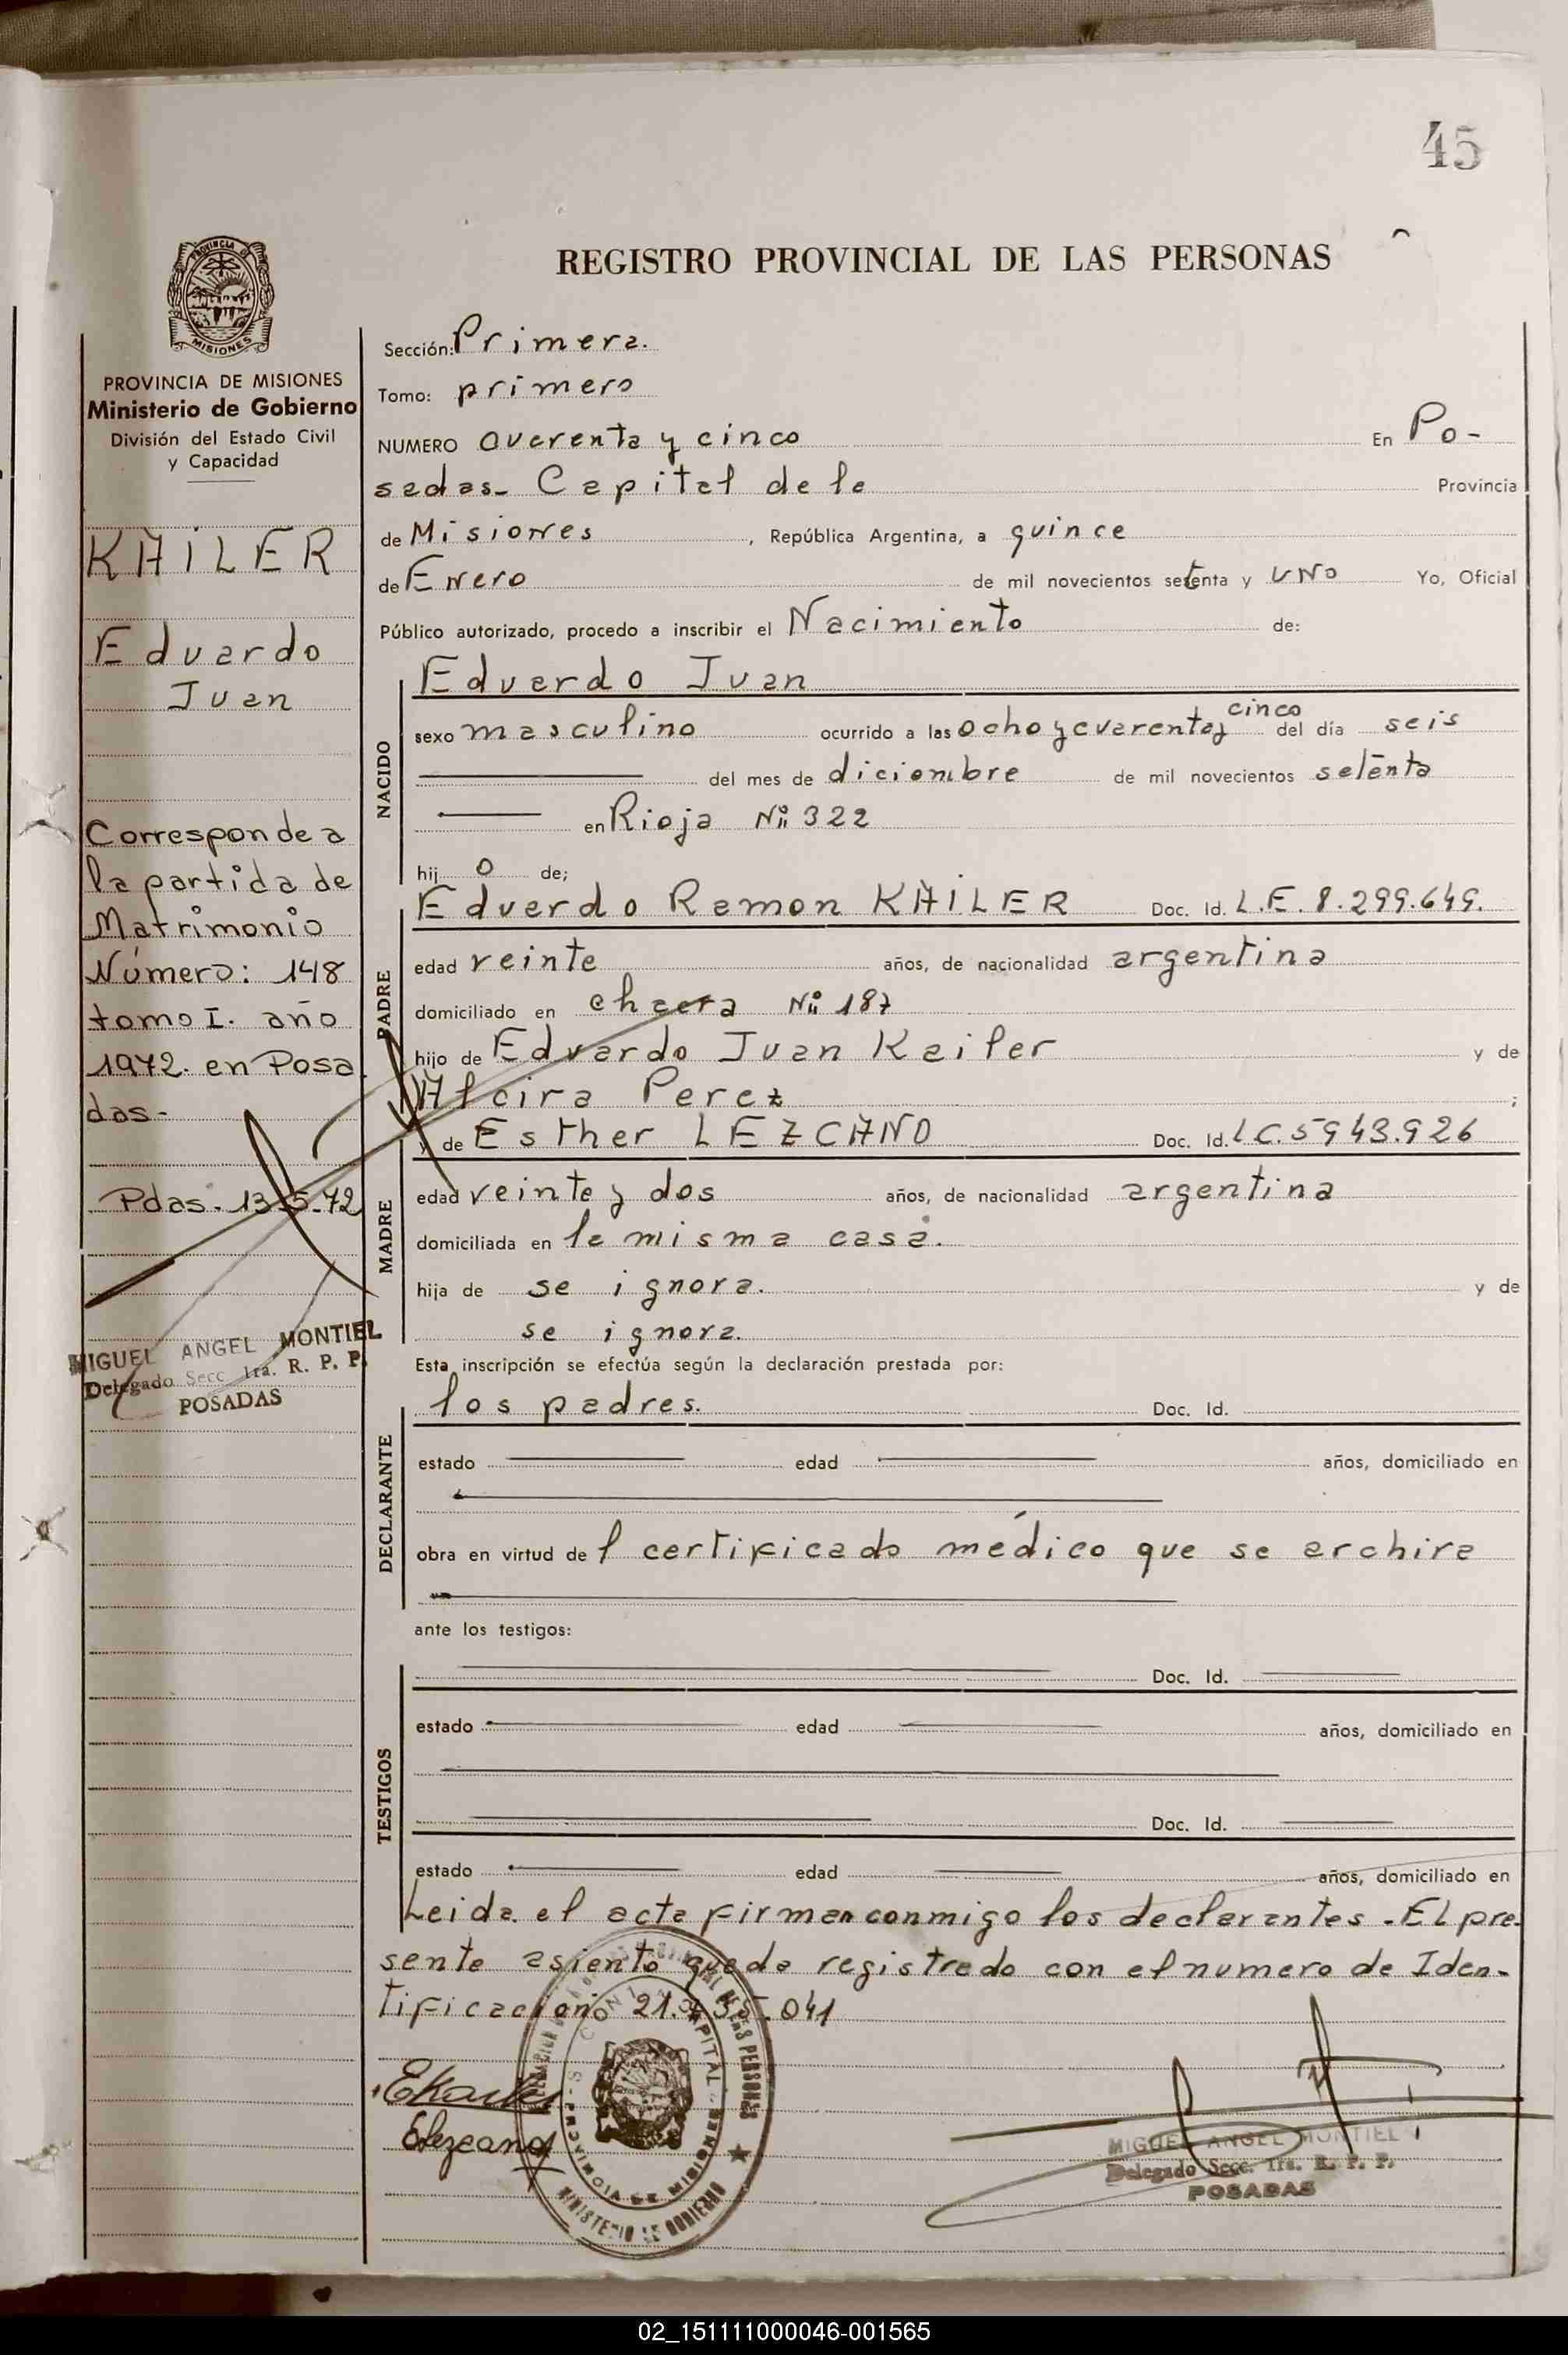 45
REGISTRO PROVINCIAL DE LAS PERSONAS
PROVINCIA DE MISIONES
Ministerio de Gobierno
División del Estado Civil
y Capacidad
KAILER
Eduardo
Juan
Corresponde a
la partida de
Matrimonio
Número: 148
tomo I. año
1972. en Posa
das-
Pdas. 13-5-72
MIGUEL ANGEL MONTIEL
Delegado Secc. 1ra. R. P. P.
POSADAS
Sección: Primera.
Tomo: primero
NUMERO cuarenta y cinco En Po-
sadas- Capital de la Provincia
de Misiones, República Argentina, a quince
de Enero de mil novecientos setenta y uno Yo, Oficial
Público autorizado, procedo a inscribir el Nacimiento de:
NACIDO
Eduardo Juan
sexo masculino ocurrido a las ocho y cuarenta y cinco del día seis
del mes de diciembre de mil novecientos setenta
en Rioja Nº 322
hij o de;
PADRE
Eduardo Ramon KAILER Doc. Id. L.E. 8.299.649.
edad veinte años, de nacionalidad argentina
domiciliado en chacra Nº 187
hijo de Eduardo Juan Kailer y de
Alcira Perez ;
MADRE
y de Esther LEZCANO Doc. Id. LC. 5943.926
edad veinte y dos años, de nacionalidad argentina
domiciliada en la misma casa.
hija de se ignora. y de
se ignora.
Esta inscripción se efectúa según la declaración prestada por:
DECLARANTE
los padres. Doc. Id.
estado edad años, domiciliado en
obra en virtud del certificado médico que se archiva
ante los testigos:
TESTIGOS
Doc. Id.
estado edad años, domiciliado en
Doc. Id.
estado edad años, domiciliado en
Leida el acta firman conmigo los declarantes. El pre-
sente asiento queda registrado con el numero de Iden-
tificación 21. .041
EKailer
Elezcano
MIGUEL ANGEL MONTIEL
Delegado Secc. 1ra. R. P. P.
POSADAS
MINISTERIO DE GOBIERNO
PROVINCIA DE MISIONES
02_151111000046-001565